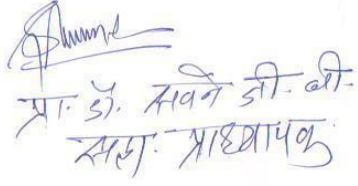 प्रा. डॉ. सवने जी. बी.
सहा. प्राध्यापक